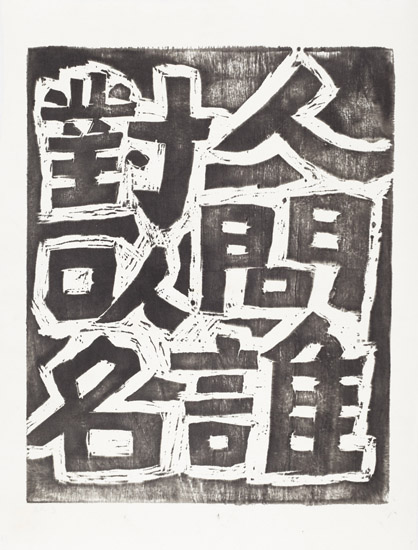 人問誰
對以名